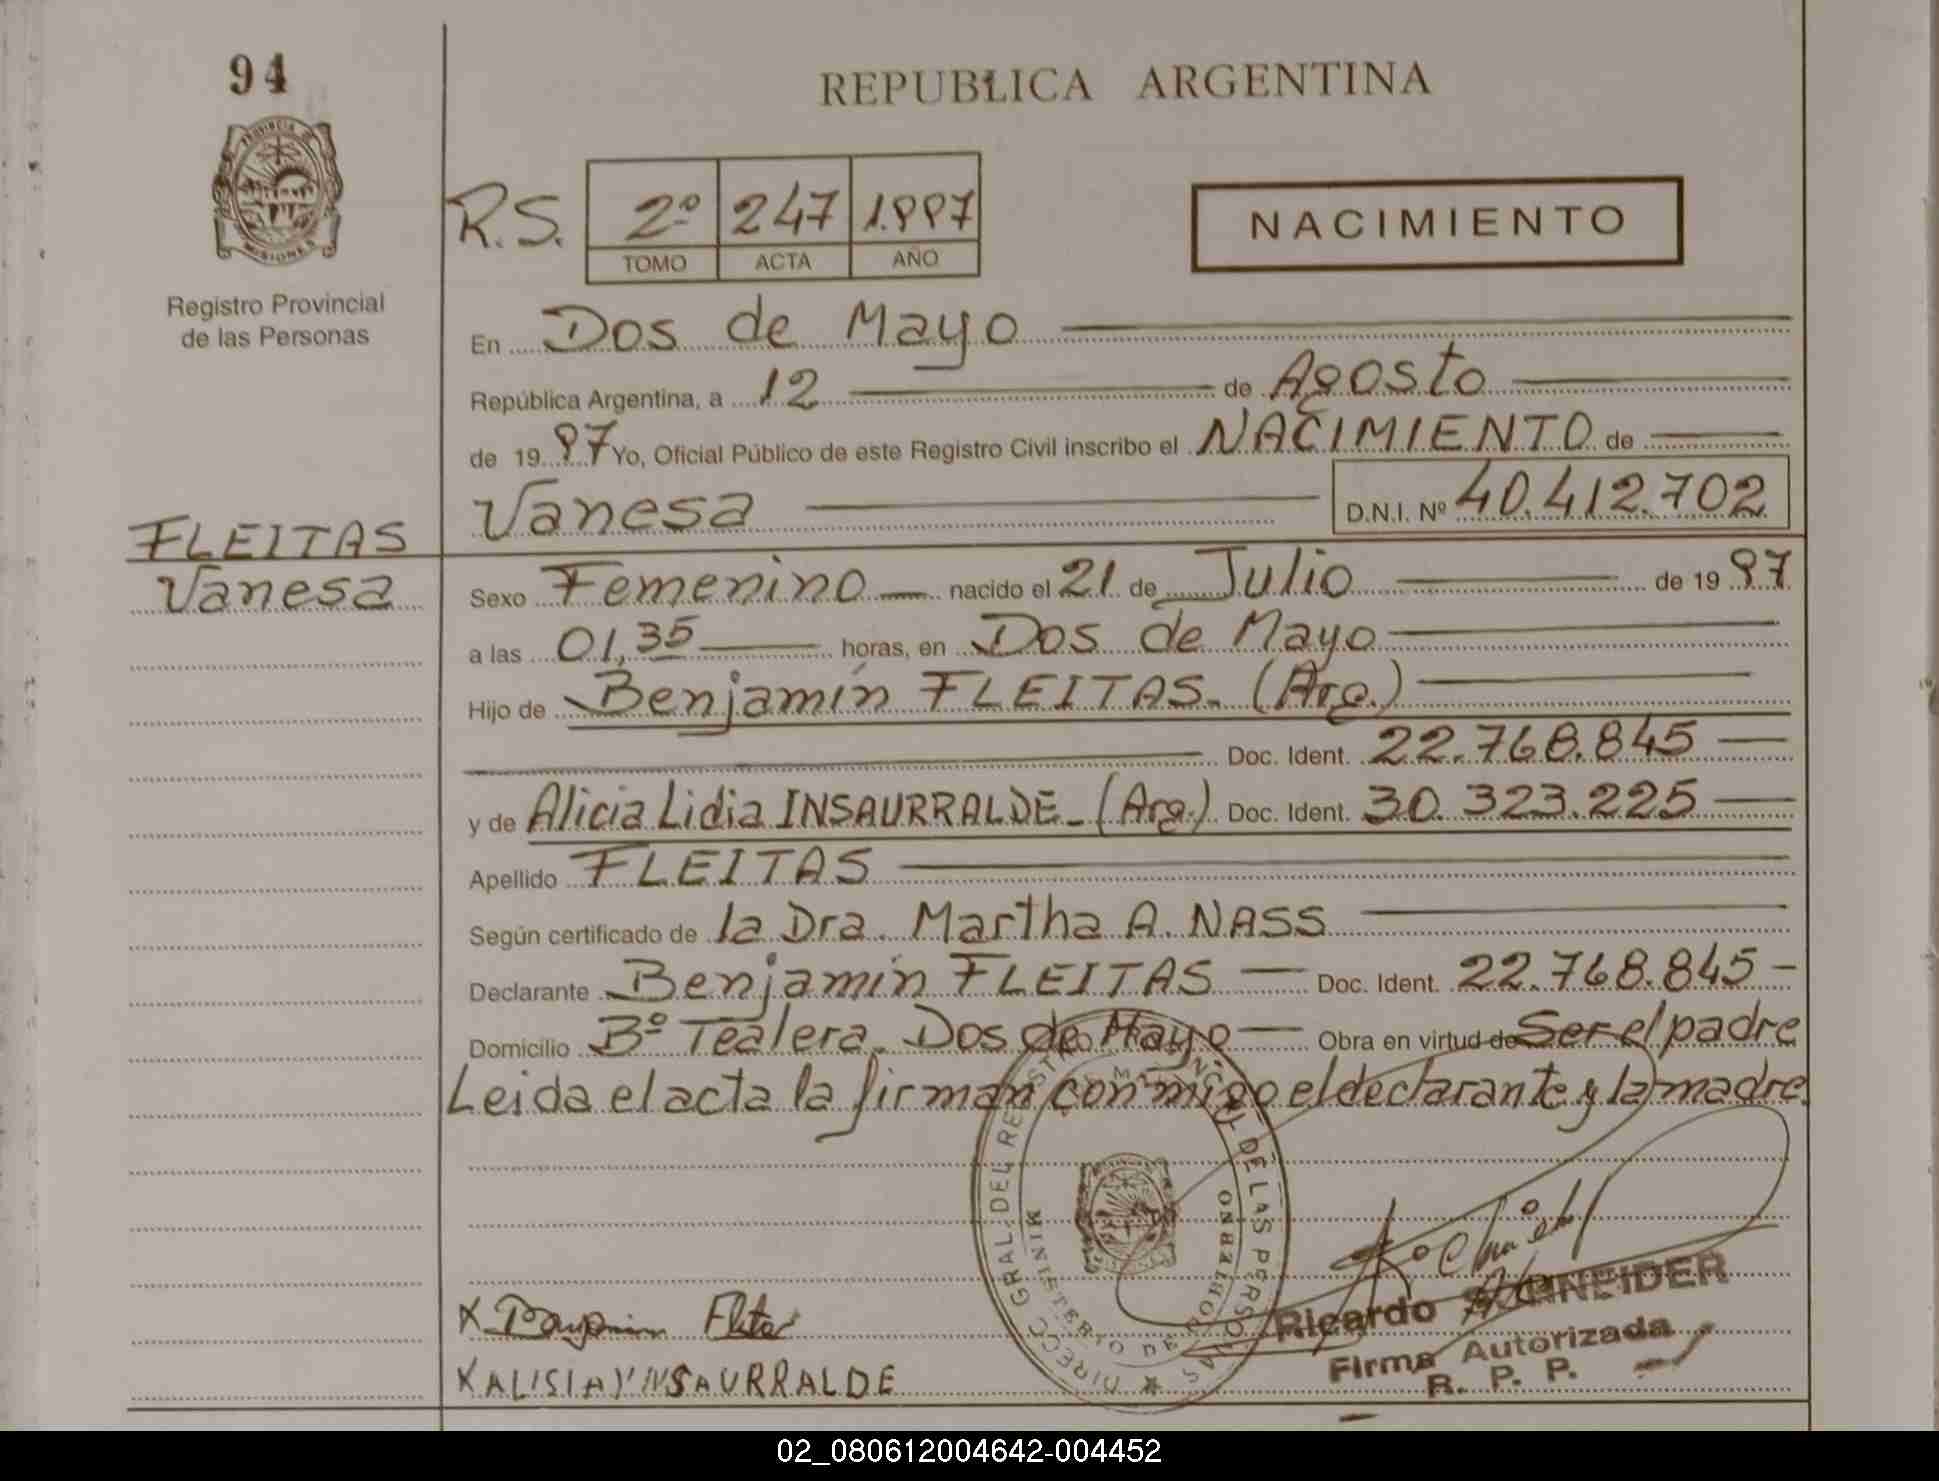 94
REPUBLICA ARGENTINA
PROVINCIA DE
MISIONES
Registro Provincial
de las Personas
R.S.
2º 247 1.997
TOMO ACTA AÑO
NACIMIENTO
En Dos de Mayo
República Argentina, a 12 de Agosto
de 19 97 Yo, Oficial Público de este Registro Civil inscribo el NACIMIENTO de
Vanesa D.N.I. Nº 40.412.702
FLEITAS
Vanesa
Sexo Femenino nacido el 21 de Julio de 19 97
a las 01,35 horas, en Dos de Mayo
Hijo de Benjamín FLEITAS. (Arg.)
Doc. Ident. 22.768.845
y de Alicia Lidia INSAURRALDE (Arg.) Doc. Ident. 30.323.225
Apellido FLEITAS
Según certificado de la Dra. Martha A. NASS
Declarante Benjamín FLEITAS Doc. Ident. 22.768.845
Domicilio Bº Tealera. Dos de Mayo Obra en virtud de Ser el padre
Leida el acta la firman conmigo el declarante y la madre.
DIRECC GRAL DEL REGIST DE LAS PERSONAS
MINISTERIO DE GOBIERNO
Ricardo SCHNEIDER
Firma Autorizada
R. P. P.
X ALISIA INSAURRALDE
02_080612004642-004452